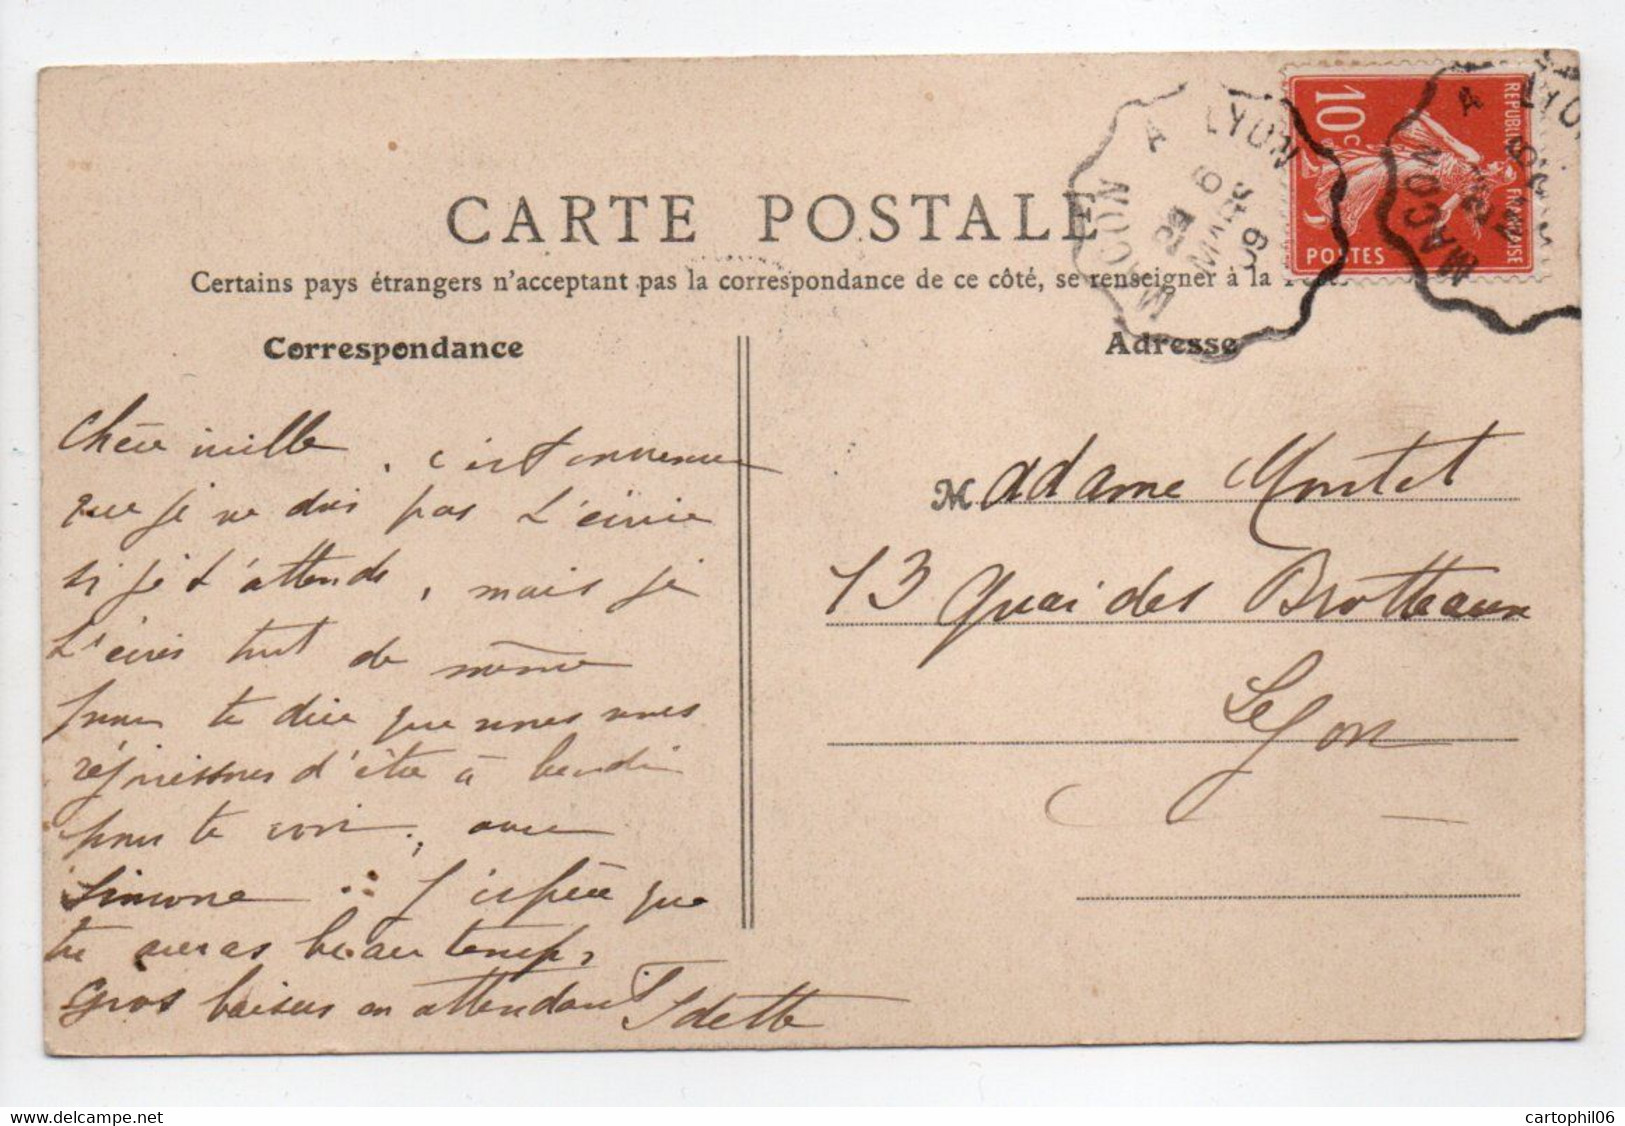 CARTE POSTALE
Certains pays étrangers n'acceptant pas la correspondance de ce côté, se renseigner à la
Correspondance
Adresse
Chère , c'est convenu
que je ne dois pas t'écrire
si je t'attends, mais je
t'écris tout de même
pour te dire que nous nous
réjouissons d'être à
pour te voir, avec
Simone J'espère que
tu auras beau temps,
Gros baisers en attendant Odette
Madame Montet
13 Quai des Brotteaux
Lyon
MACON A LYON
6
MARS
09
10c
REPUBLIQUE FRANÇAISE
POSTES
MACON A LYON
cartophil06